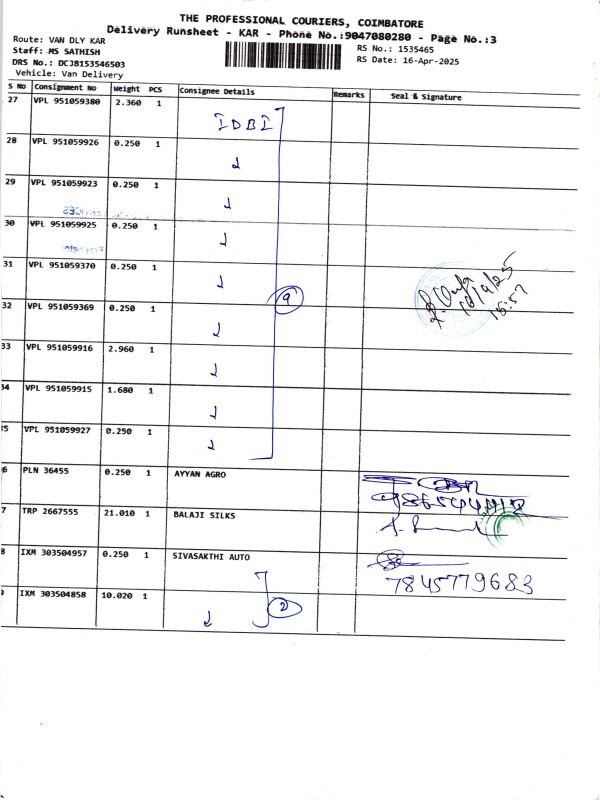 THE PROFESSIONAL COURIERS, COIMBATORE
Delivery Runsheet - KAR - Phone No.:9047080280 - Page No.:3
Route: VAN DLY KAR
Staff: MS SATHISH
DRS No.: DCJB153546503
Vehicle: Van Delivery
RS No.: 1535465
RS Date: 16-Apr-2025
S No Consignment No Weight PCS Consignee Details Remarks Seal & Signature
27 VPL 951059380 2.360 1 IDBI
28 VPL 951059926 0.250 1
29 VPL 951059923 0.250 1
30 VPL 951059925 0.250 1
31 VPL 951059370 0.250 1
9
16/4/25
15:57
32 VPL 951059369 0.250 1
33 VPL 951059916 2.960 1
34 VPL 951059915 1.680 1
5 VPL 951059927 0.250 1
6 PLN 36455 0.250 1 AYYAN AGRO
7 TRP 2667555 21.010 1 BALAJI SILKS
8 IXM 303504957 0.250 1 SIVASAKTHI AUTO
7845779683
IXM 303504858 10.020 1
2